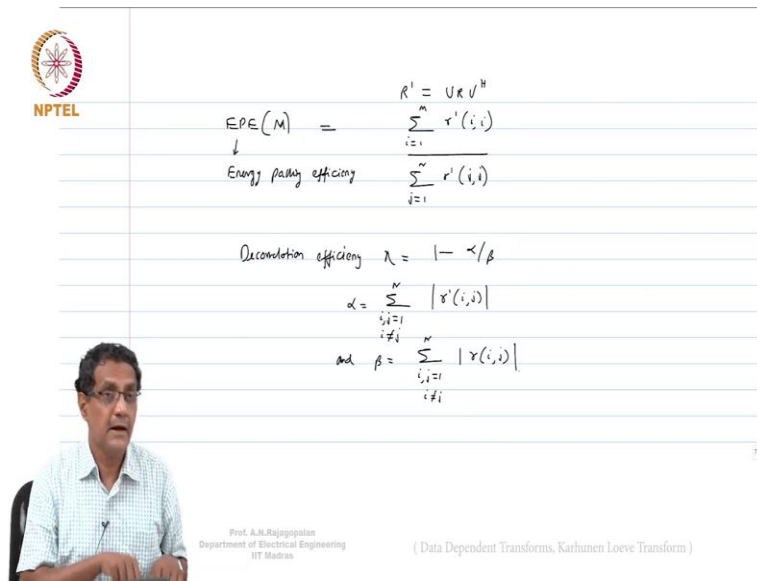 NPTEL
R' = URU^H
EPE(M) = \frac{\sum_{i=1}^{M} r'(i,i)}{\sum_{j=1}^{N} r'(j,j)}
↓
Energy packing efficiency
Decorrelation efficiency λ = 1 - α/β
α = \sum_{i,j=1, i≠j}^{N} |r'(i,j)|
and β = \sum_{i,j=1, i≠j}^{N} |r(i,j)|
Prof. A.N.Rajagopalan
Department of Electrical Engineering
IIT Madras
( Data Dependent Transforms, Karhunen Loeve Transform )